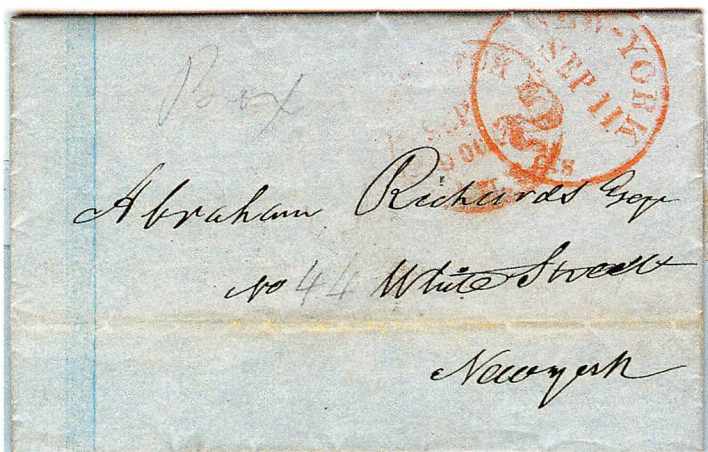 Box
NEW-YORK
SEP 11
2 cts
Abraham Richards Esqr
No 44 White Street
Newyork